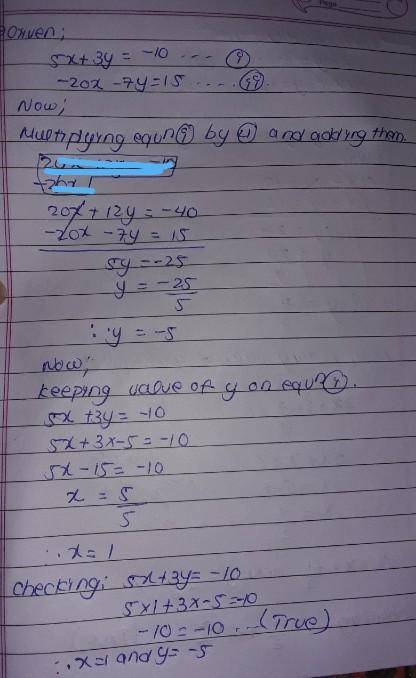 Given;
5x + 3y = -10 ---- (i)
-20x - 7y = 15 ..... (ii)
Now;
Multiplying equn (i) by (4) and adding them.
20x + 12y = -40
-20x - 7y = 15
5y = -25
y = -25
5
∴ y = -5
Now;
keeping value of y on equn (i).
5x + 3y = -10
5x + 3x-5 = -10
5x - 15 = -10
x = 5
5
∴ x = 1
checking: 5x + 3y = -10
5x1 + 3x-5 = -10
-10 = -10 .. (True)
∴ x=1 and y = -5